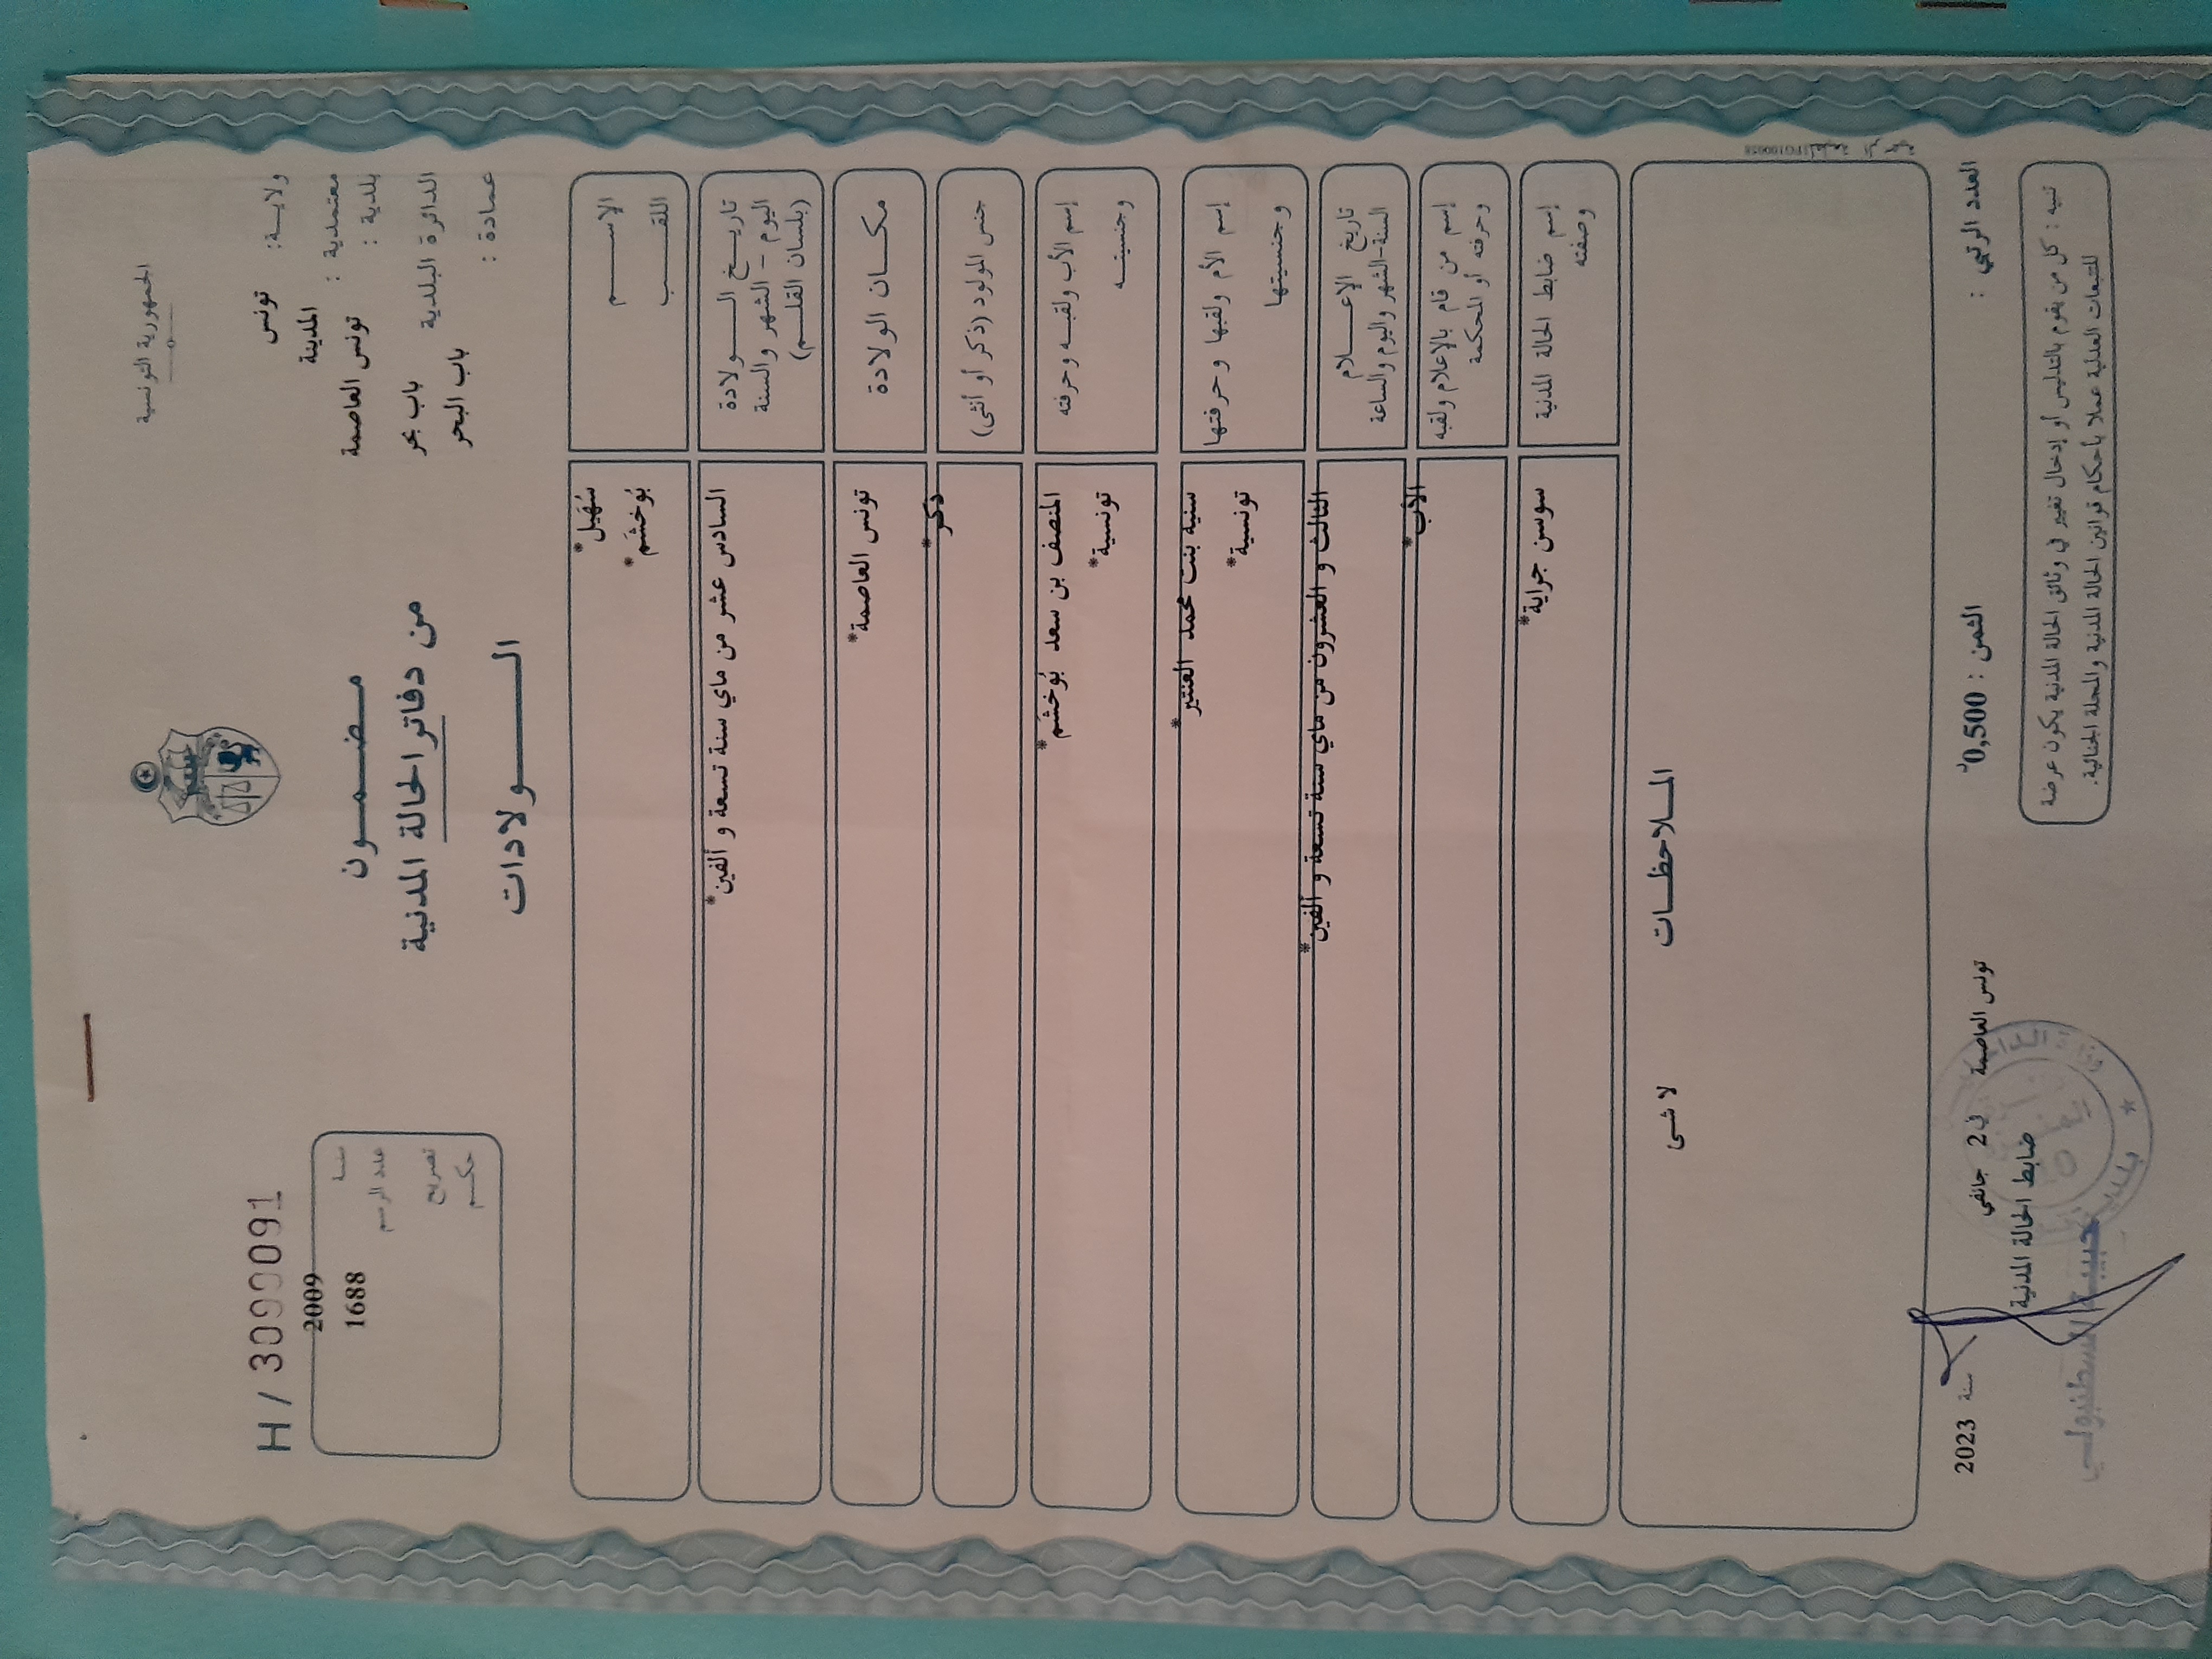 الجمهورية التونسية
ولايــة: تونس
معتمدية : المدينة
بلدية : تونس العاصمة
الدائرة البلدية باب بحر
عمادة : باب البحر
H / 3099091
سنة 2009
عدد الرسم 1688
تصريح
حكم
مـضـمـون
من دفاتر الحالة المدنية
الـــولادات
الإســـم سُهَيل*
اللقـــب بُوخشَم*
تاريــخ الـــولادة السادس عشر من ماي سنة تسعة و ألفين*
اليوم - الشهر والسنة
(بلسان القلــم)
مكــان الولادة تونس العاصمة*
جنس المولود (ذكر أو أنثى) ذكر*
إسم الأب ولقبـه وحرفته المنصف بن سعد بُوخشَم*
وجنسيتــه تونسية*
إسم الأم ولقبها وحرفتها سنية بنت محمد العنتير*
وجنسيتها تونسية*
تاريخ الإعــلام الثالث و العشرون من ماي سنة تسعة و ألفين*
السنة-الشهر واليوم والساعة
إسم من قام بالإعلام ولقبه الأب*
وحرفته أو المحكمة
إسم ضابط الحالة المدنية سوسن جراية*
وصفته
المــلاحظــات
لا شئ
العدد الرتبي :
الثمن : 0,500د
تونس العاصمة في 2 جانفي سنة 2023
ضابط الحالة المدنية
تنبيه : كل من يقوم بالتدليس أو إدخال تغيير في وثائق الحالة المدنية يكون عرضة
للتتبعات العدلية عملا بأحكام قوانين الحالة المدنية والمجلة الجنائية.